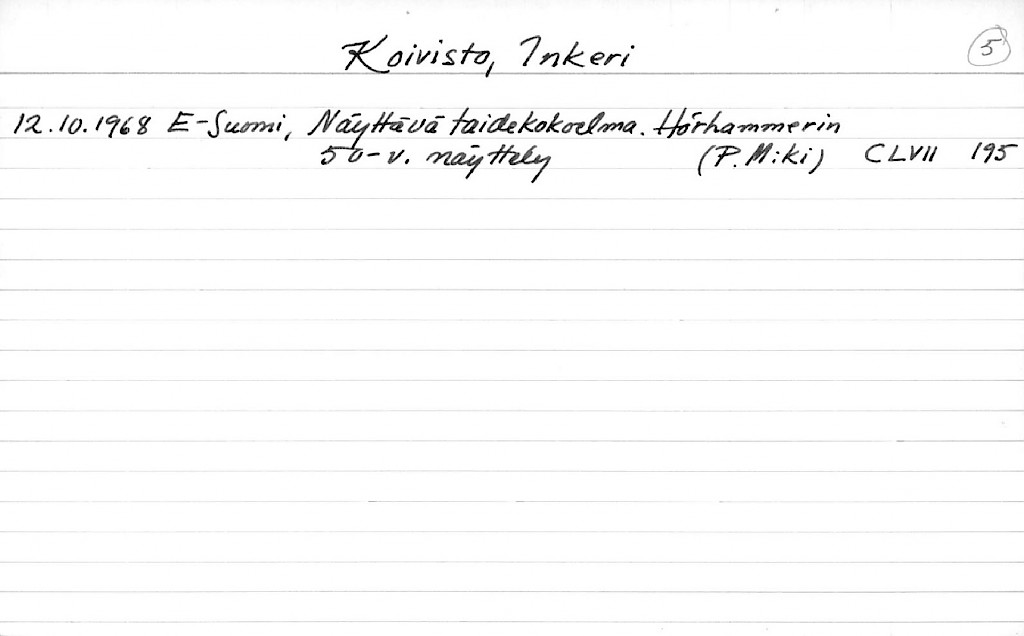 Koivisto, Inkeri 5
12.10.1968 E-Suomi, Näyttävä taidekokoelma. Hörhammerin
50-v. näyttely (P. M:ki) CLVII 195